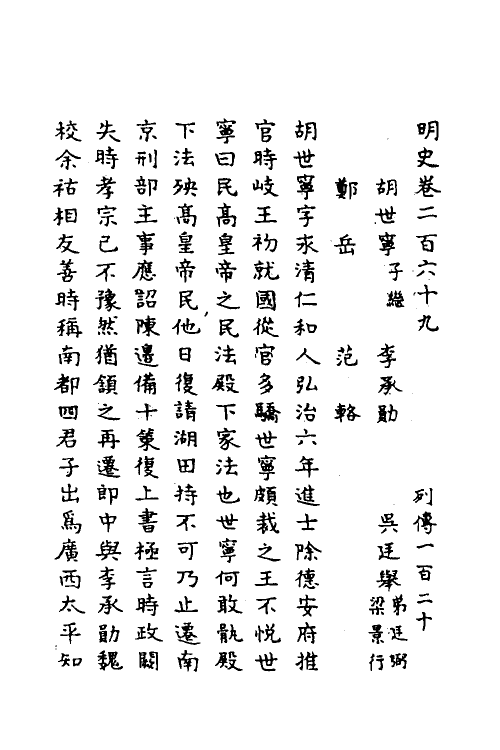 明史卷二百六十九 列傳一百二十
胡世寧子繼 李承勛 吳廷舉弟廷弼 梁景行
鄭岳 范輅
胡世寧字永清仁和人弘治六年進士除德安府推
官時岐王初就國從官多驕世寧頗裁之王不悅世
寧曰民高皇帝之民法殿下家法也世寧何敢骫殿
下法殃高皇帝民他日復請湖田持不可乃止遷南
京刑部主事應詔陳邊備十策復上書極言時政闕
失時孝宗已不豫然猶頷之再遷郎中與李承勛魏
校余祐相友善時稱南都四君子出爲廣西太平知